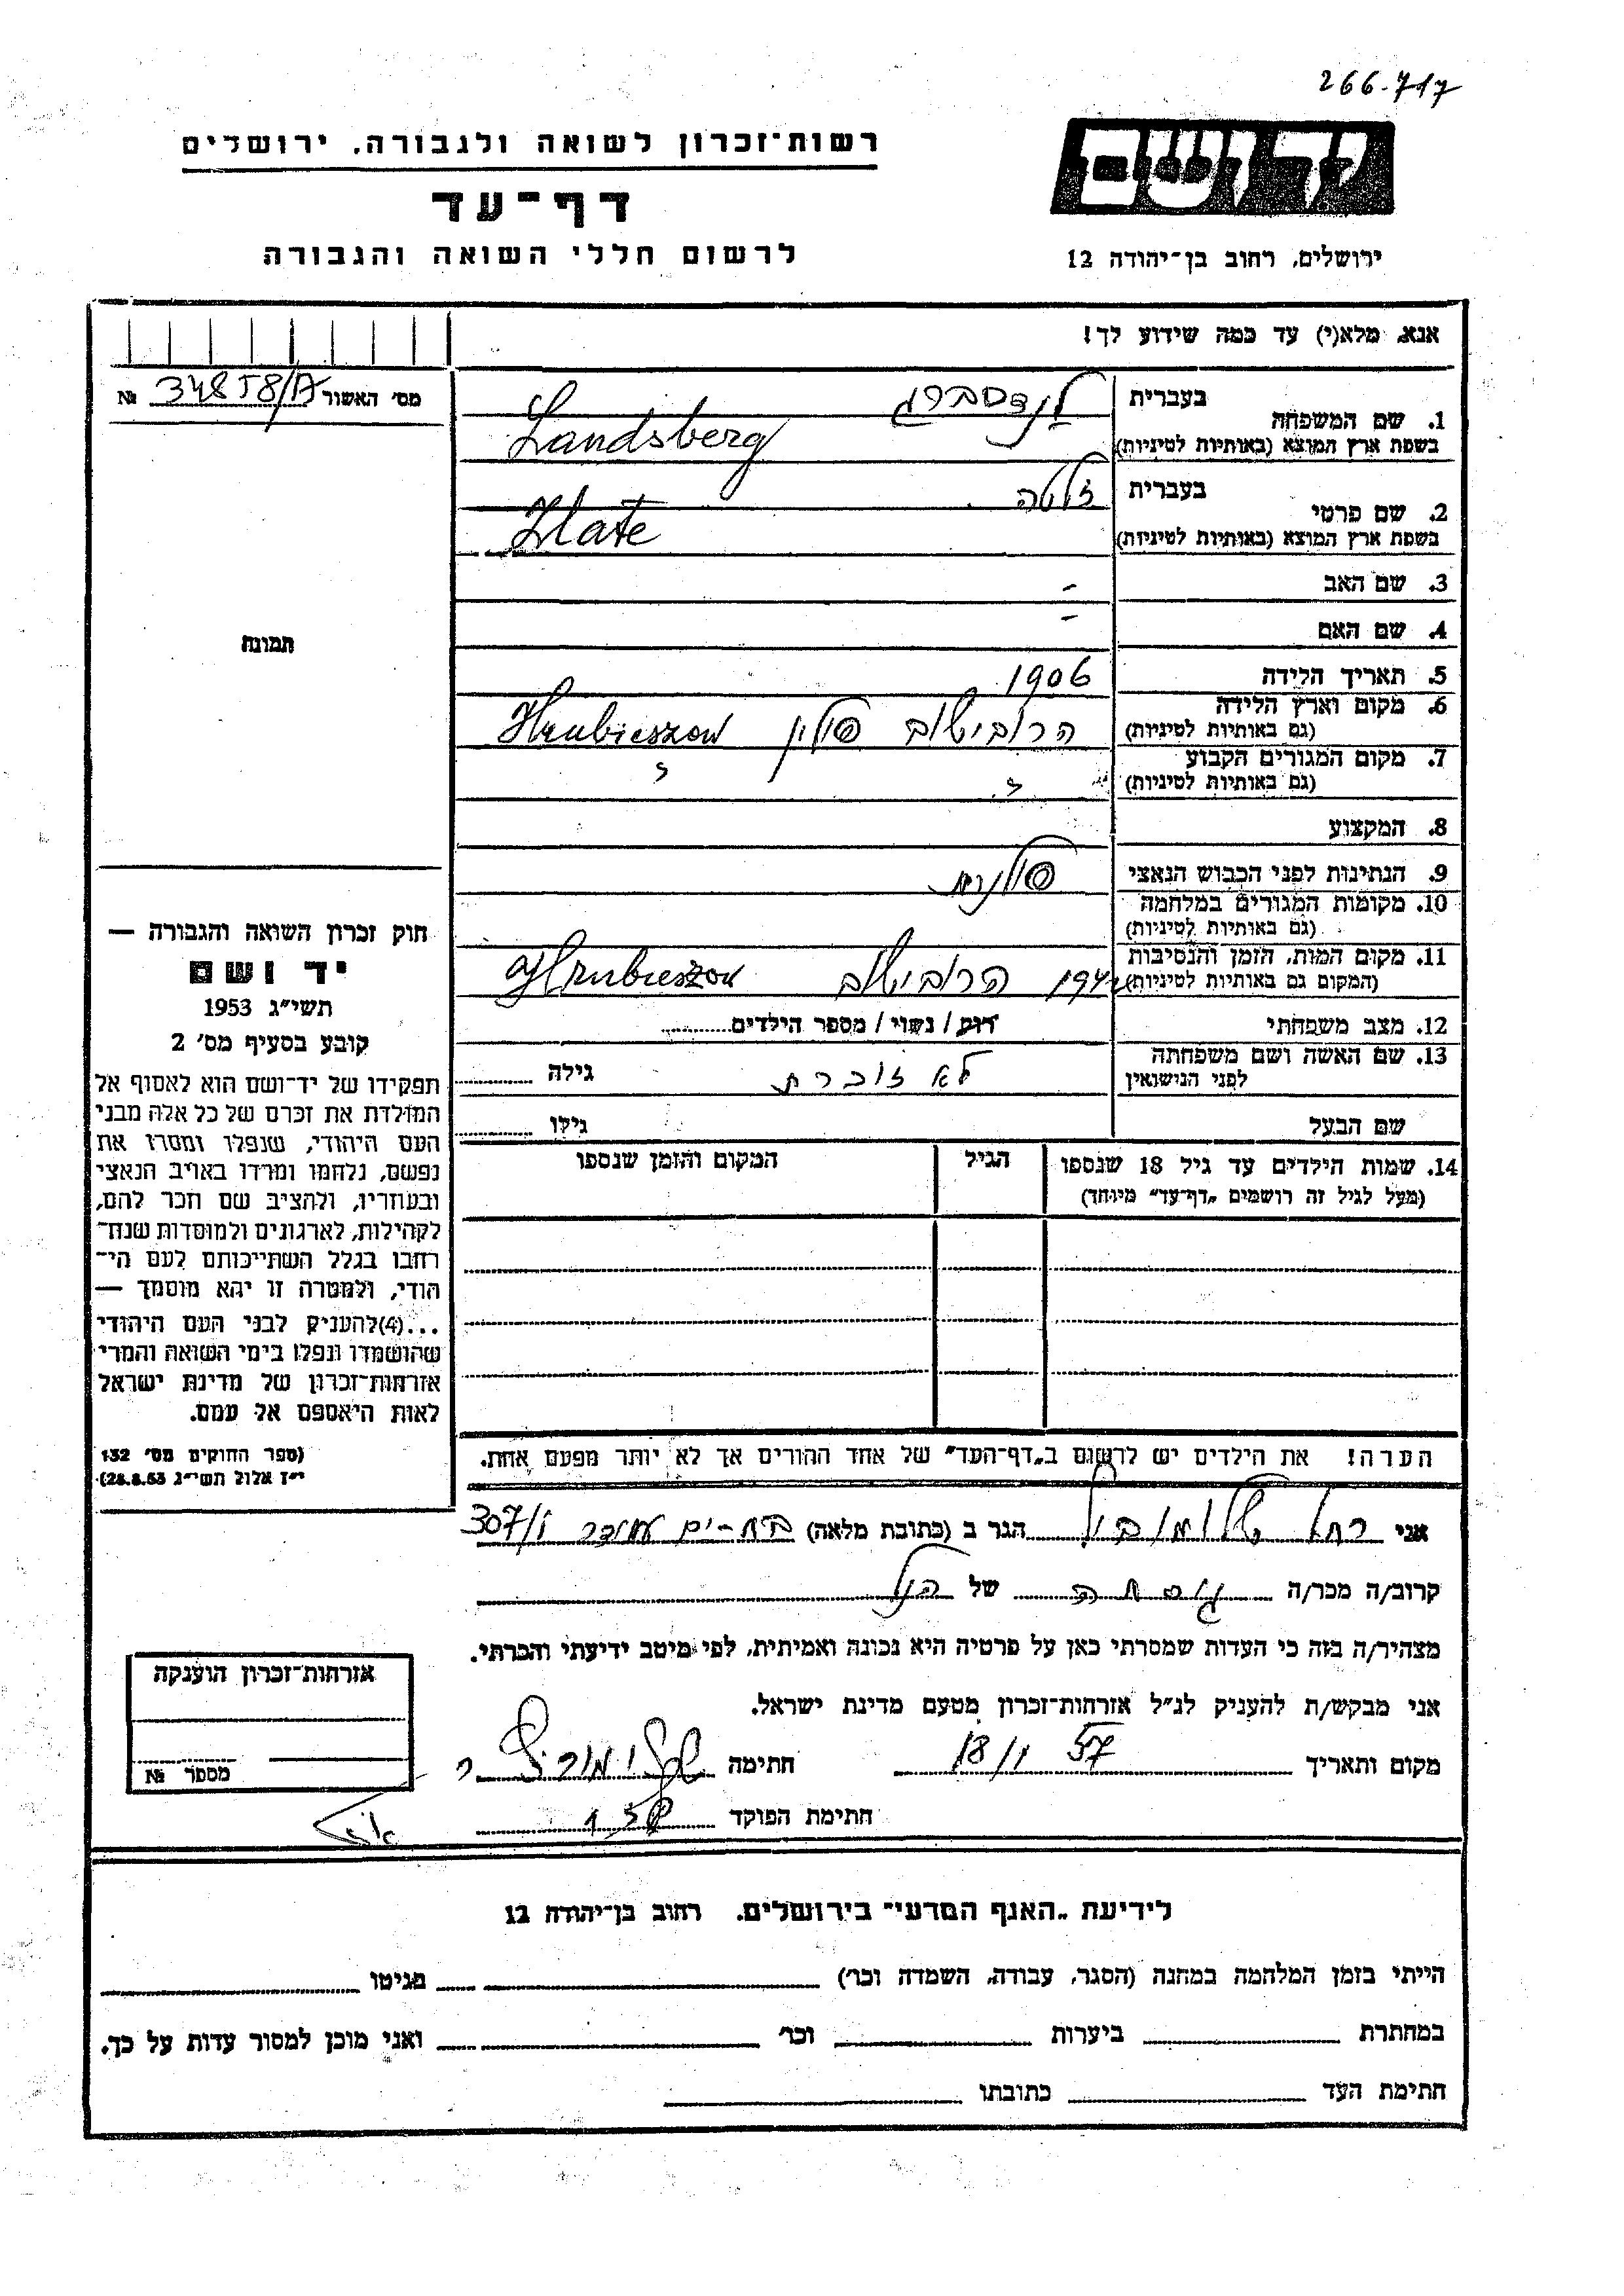 266.717
רשות־זכרון לשואה ולגבורה, ירושלים
דף־עד
לרשום חללי השואה והגבורה
יד ושם
ירושלים, רחוב בן־יהודה 12
אנא, מלא(י) עד כמה שידוע לך!
מס' האשור 34858/A №
תמונה
1. שם המשפחה בעברית לנדסברג
בשפת ארץ המוצא (באותיות לטיניות) Landsberg
2. שם פרטי בעברית זלטה
בשפת ארץ המוצא (באותיות לטיניות) Zlate
3. שם האב -
4. שם האם -
5. תאריך הלידה 1906
6. מקום וארץ הלידה (גם באותיות לטיניות) הרובישוב פולין Hrubieszow
7. מקום המגורים הקבוע (גם באותיות לטיניות)
8. המקצוע
9. הנתינות לפני הכבוש הנאצי פולנית
10. מקומות המגורים במלחמה (גם באותיות לטיניות)
11. מקום המות, הזמן והנסיבות (המקום גם באותיות לטיניות) הרובישוב Hrubieszow
12. מצב משפחתי רוק / נשוי / מספר הילדים
13. שם האשה ושם משפחתה לפני הנישואין לא זוכרת גילה
שם הבעל גילו
14. שמות הילדים עד גיל 18 שנספו הגיל המקום והזמן שנספו
(מעל לגיל זה רושמים „דף־עד" מיוחד)
חוק זכרון השואה והגבורה —
יד ושם
תשי"ג 1953
קובע בסעיף מס' 2
תפקידו של יד־ושם הוא לאסוף אל
המולדת את זכרם של כל אלה מבני
העם היהודי, שנפלו ומסרו את
נפשם, נלחמו ומרדו באויב הנאצי
ובעוזריו, ולהציב שם וזכר להם,
לקהילות, לארגונים ולמוסדות שנח־
רבו בגלל השתייכותם לעם הי־
הודי, ולמטרה זו יהא מוסמך —
...(4)להעניק לבני העם היהודי
שהושמדו ונפלו בימי השואה והמרי
אזרחות־זכרון של מדינת ישראל
לאות היאספם אל עמם.
(ספר החוקים מס' 132
י"ז אלול תשי"ג 28.8.53)
הערה! את הילדים יש לרשום ב„דף־העד" של אחד ההורים אך לא יותר מפעם אחת.
אני רחל הגר ב (כתובת מלאה) בת-ים עמידר 307/1
קרוב/ה מכר/ה גיסתה של הנ"ל
מצהיר/ה בזה כי העדות שמסרתי כאן על פרטיה היא נכונה ואמיתית, לפי מיטב ידיעתי והכרתי.
אני מבקש/ת להעניק לנ"ל אזרחות־זכרון מטעם מדינת ישראל.
מקום ותאריך 18/1 57 חתימה
חתימת הפוקד
אזרחות־זכרון הוענקה
מספר №
לידיעת „האגף המדעי" בירושלים, רחוב בן־יהודה 12
הייתי בזמן המלחמה במחנה (הסגר, עבודה, השמדה וכו') בגיטו
במחתרת ביערות וכו' ואני מוכן למסור עדות על כך.
חתימת העד כתובתו